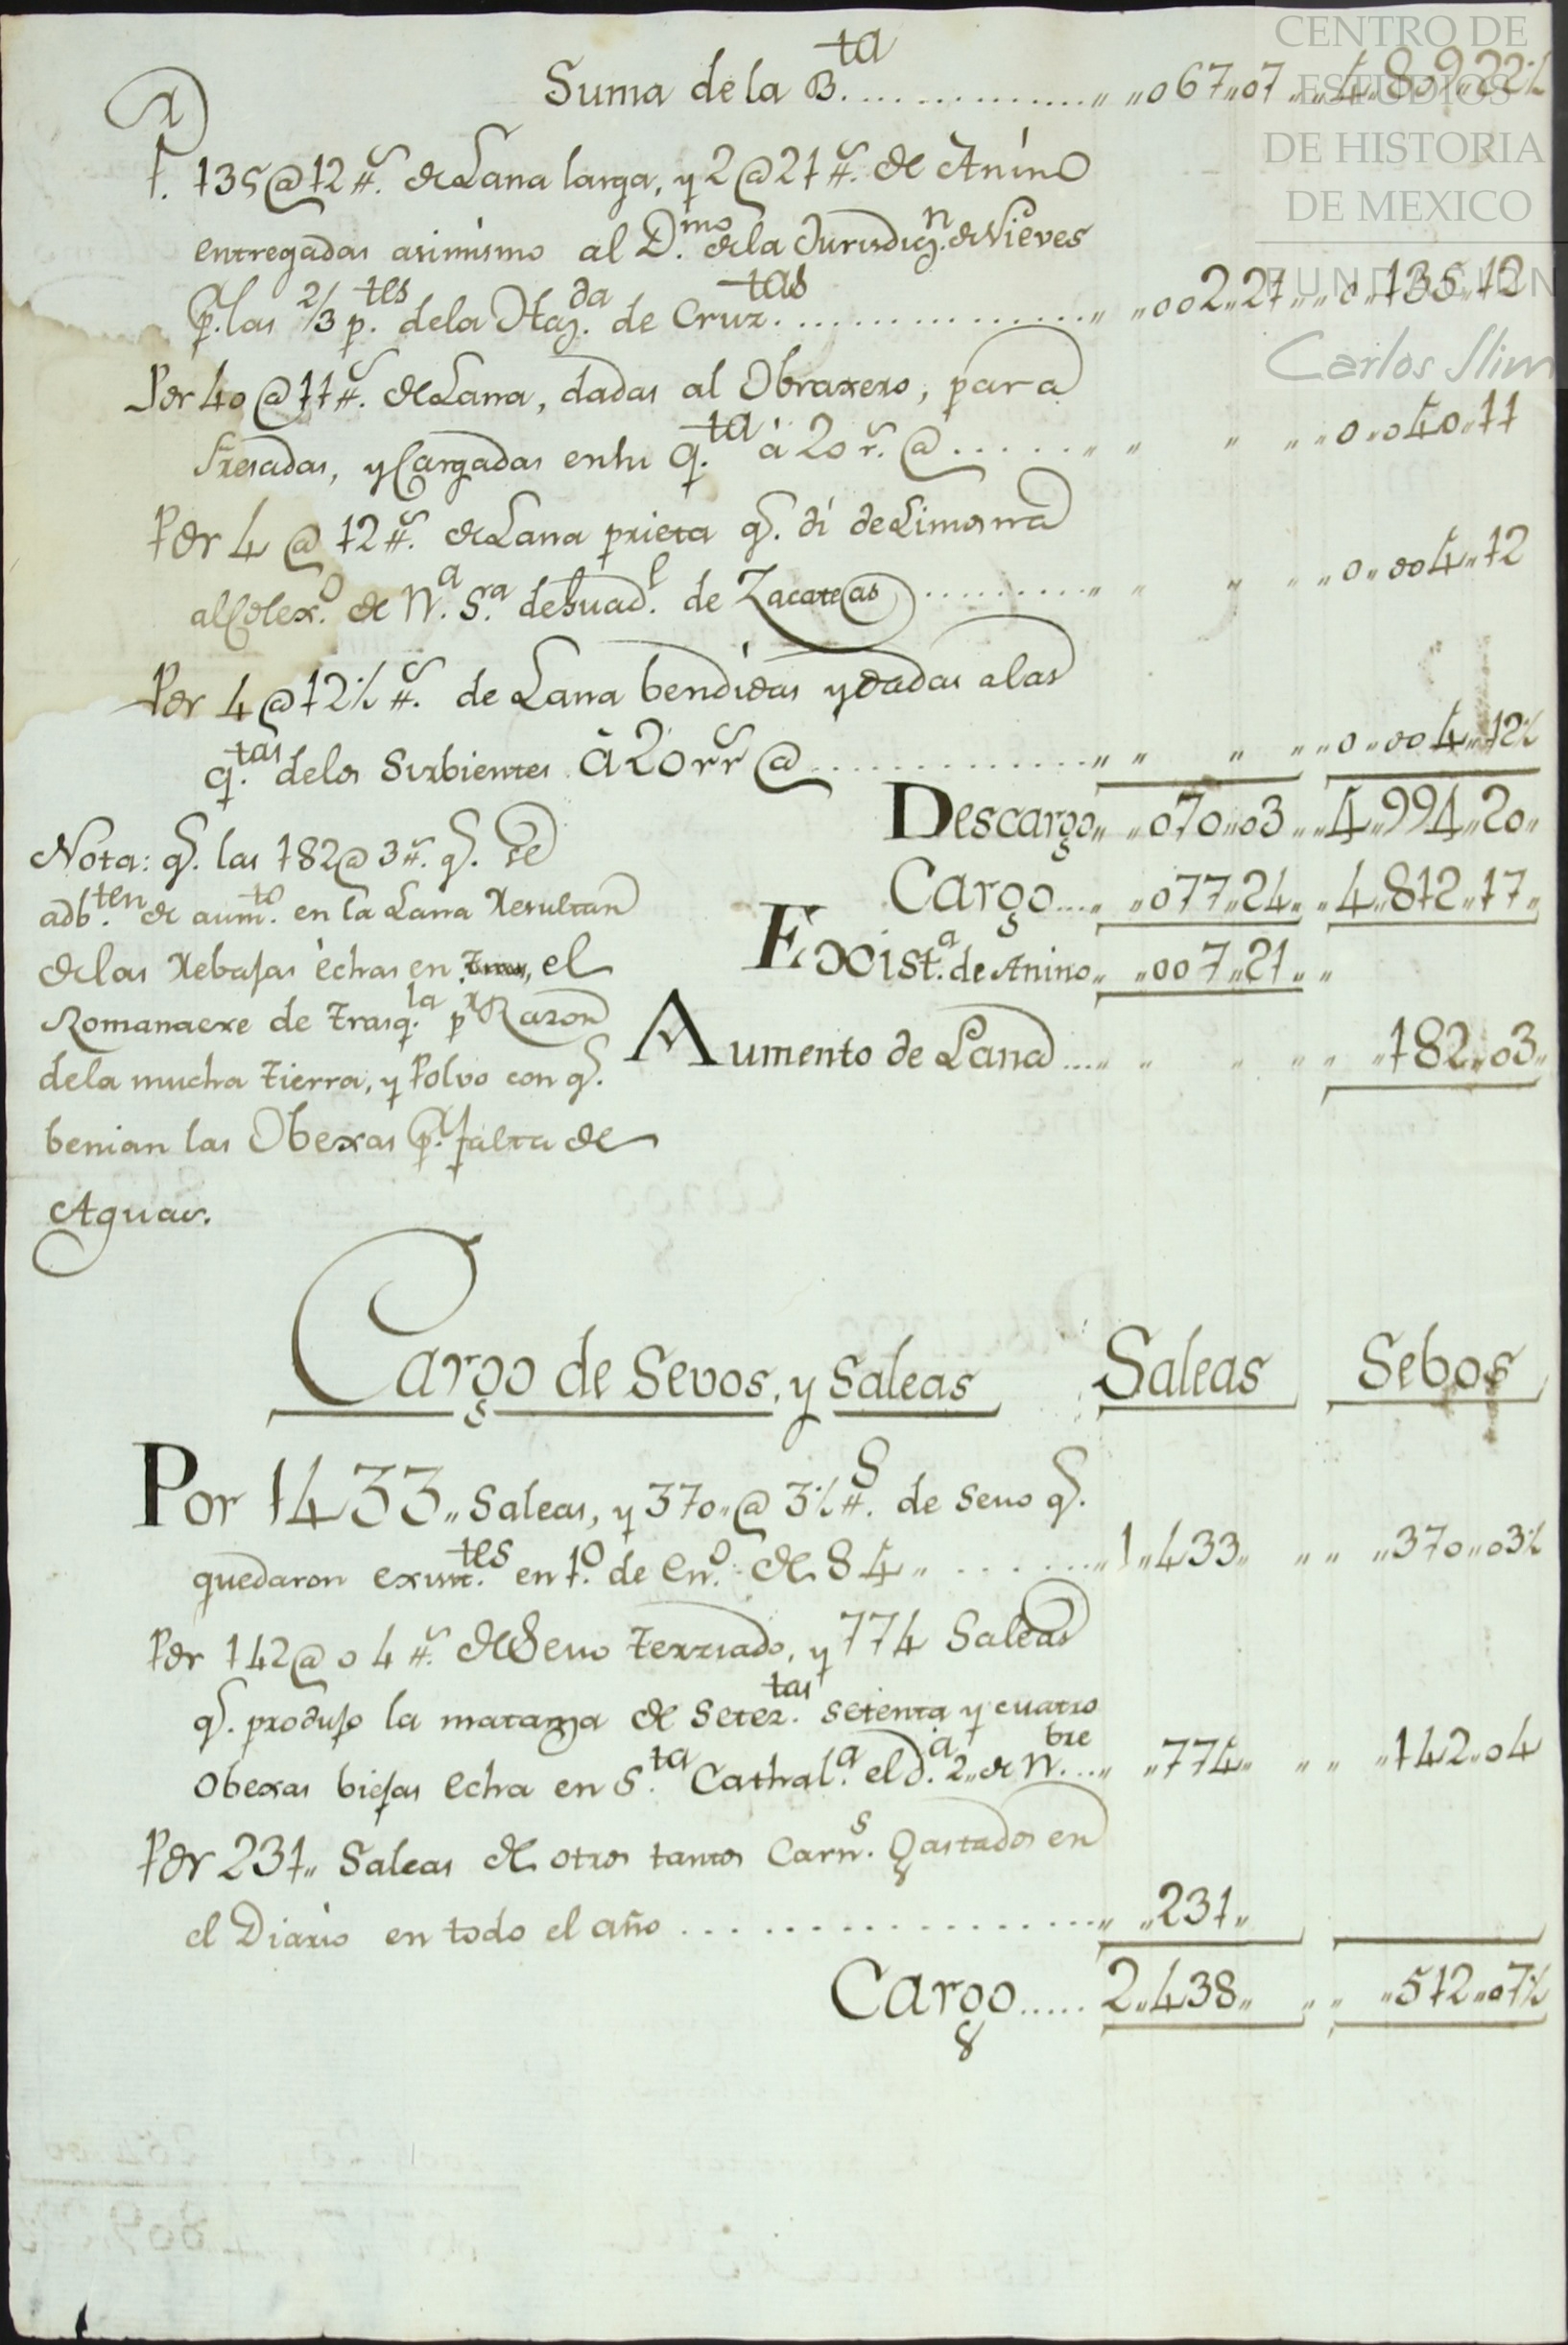 CENTRO DE
ESTUDIOS
DE HISTORIA
DE MEXICO
FUNDACION
Carlos Slim
Suma de la B.ta ................ „ „067„07 „ „4„809„22½
P. 135@12 #s. de Lana larga, y 2@21 #s. de Anino
entregadas asimismo al D.mo de la Jurisdiq.n de Nieves
p.r las 2/3 p.tes de la Haz.da de Cruz.tas ............... „ „002„21 „ „0„135„12
Por 40@11 #s. de Lana, dadas al Obraxero, para
fresadas, y Cargadas en su q.ta à 20 rs. @ ...... „ „ „ „ „0„040„11
Por 4@12 #s. de Lana prieta q.e di de Limosna
al Colex.o de N.a S.a de Guad.l de Zacatecas .......... „ „ „ „ „0„004„12
Por 4@12½ #s. de Lana bendidas y dadas a las
q.tas de los Sirbientes à 20 rrs @ ............. „ „ „ „ „0„004„12½
Descargo „ „070„03 „ „4„994„20„
Cargo.... „ „077„24„ „4„812„17„
Exist.a de Anino „ „007„21„ „
Aumento de Lana .... „ „ „ „ „ „182„03„
Nota: q.e las 182@3 #s. q.e se
adb.ten de aum.to en la Lana Resultan
de las Rebajas echas en el
Romanaexe de trasq.la p.r Razon
de la mucha tierra, y Polvo con q.e
benian las Obexas p.r falta de
Aguas.
Cargo de Sevos, y Saleas Saleas Sebos
Por 1433„ Saleas, y 370„@ 3½ #s. de Sevo q.e
quedaron exist.tes en 1.o de En.o de 84„ ...... „1„433„ „ „ „370„03½
Por 142@04 #s. de Sevo terziado, y 774 Saleas
q.e produjo la matanza de Setez.tas setenta y cuatro
Obexas biejas echa en S.ta Cathal.a el d.a 2„ de N.bre ... „ „774„ „ „ „142„04
Por 231„ Saleas de otros tantos Carn.s Gastados en
el Diario en todo el año .................. „ „231„
Cargo..... 2„438„ „ „ „512„07½